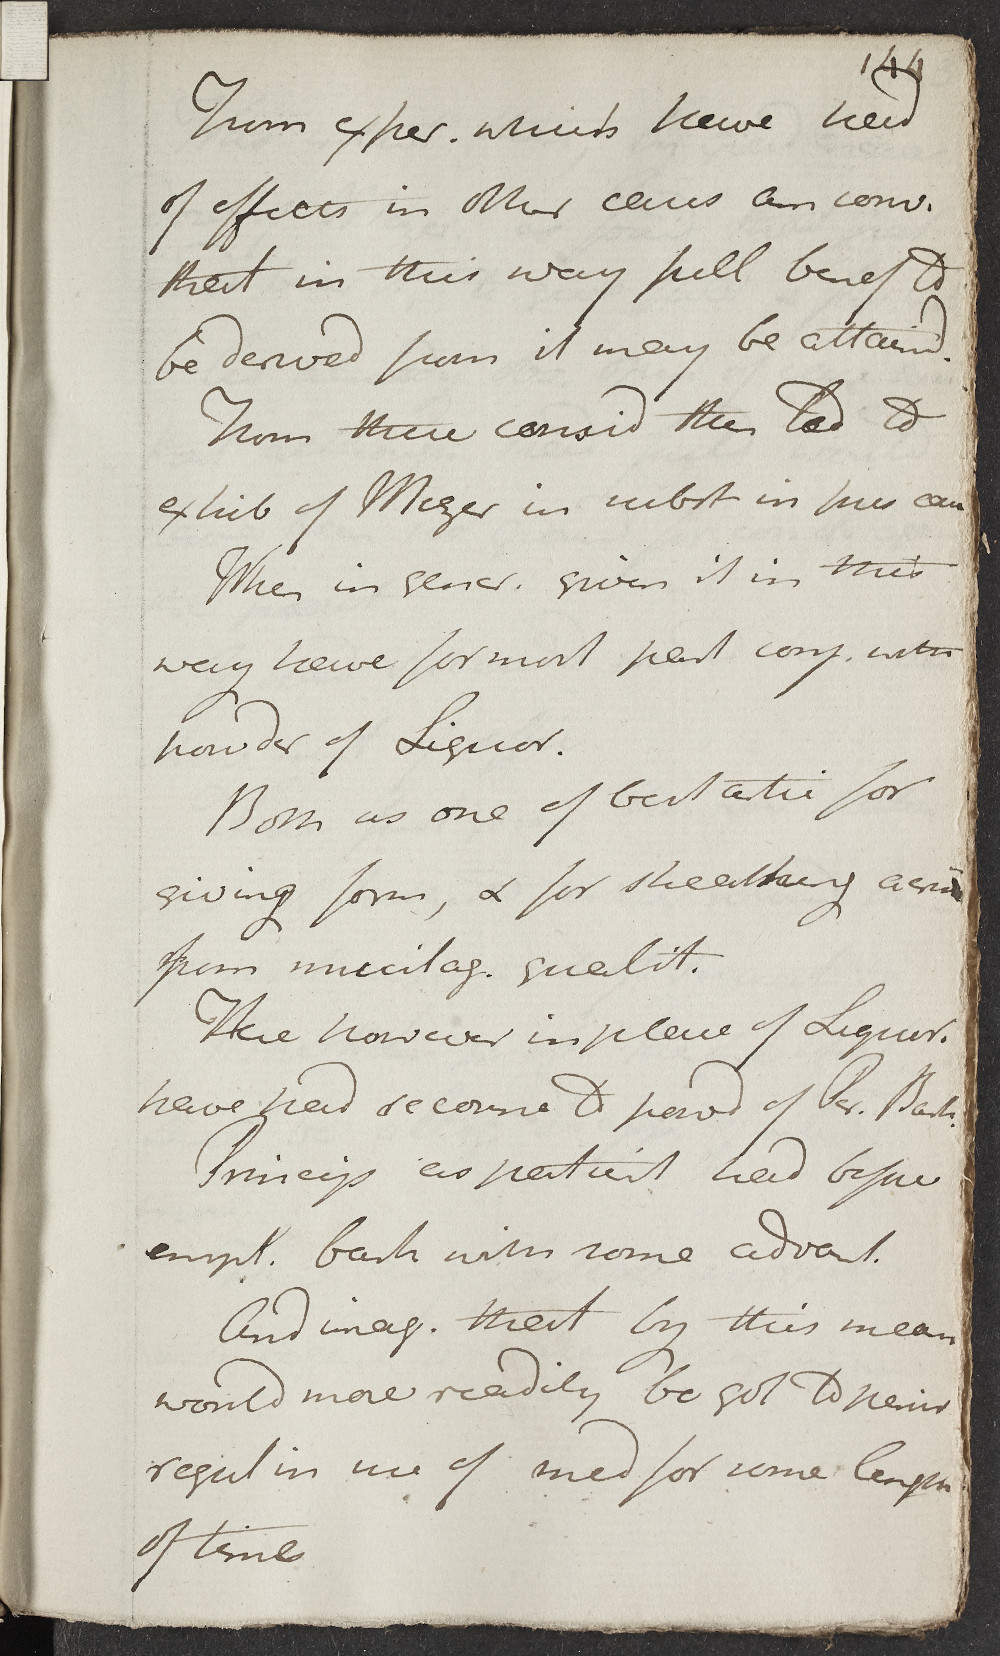 144
From exper. which have had
of effects in other cases am conv.
that in this way full benef to
be derived from it may be attaind.
From these consid then led to
exhib of Mezer in subst in pres case
When in gener. given it in this
way have for most part conj. with
powder of Liquor.
Both as one of best artic for
giving form, & for sheathing acrim
from mucilag. qualit.
Here however in place of Liquor.
have had recourse to powd of Per. Bark.
Princip as patient had before
empl. bark with some advant.
And imag. that by this mean
would more readily be got to persis
regul in use of med for some length
of time